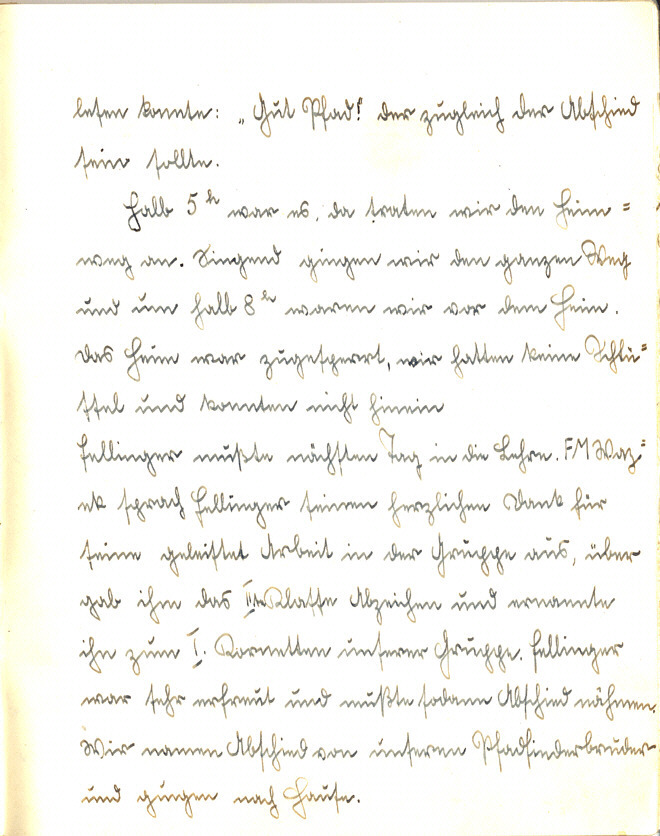 lesen konnte: „Gut Pfad!“ der zugleich der Abschied
sein sollte.
Halb 5 h war es, da traten wir den Heim=
weg an. Singend gingen wir den ganzen Weg
und um halb 8 h waren wir vor dem Heim.
Das Heim war zugesperrt, wir hatten keine Schlü=
ssel und konnten nicht hinein
Fellinger mußte nächsten Tag in die Lehre. FM Waz=
ek sprach Fellinger seinen herzlichen Dank für
seine geleistet Arbeit in der Gruppe aus, über
gab ihm das II. Klasse Abzeichen und ernannte
ihn zum I. Kornetten unserer Gruppe. Fellinger
war sehr erfreut und mußte sodann Abschied nähmen.
Wir namen Abschied von unseren Pfadfinderbruder
und gingen nach Hause.